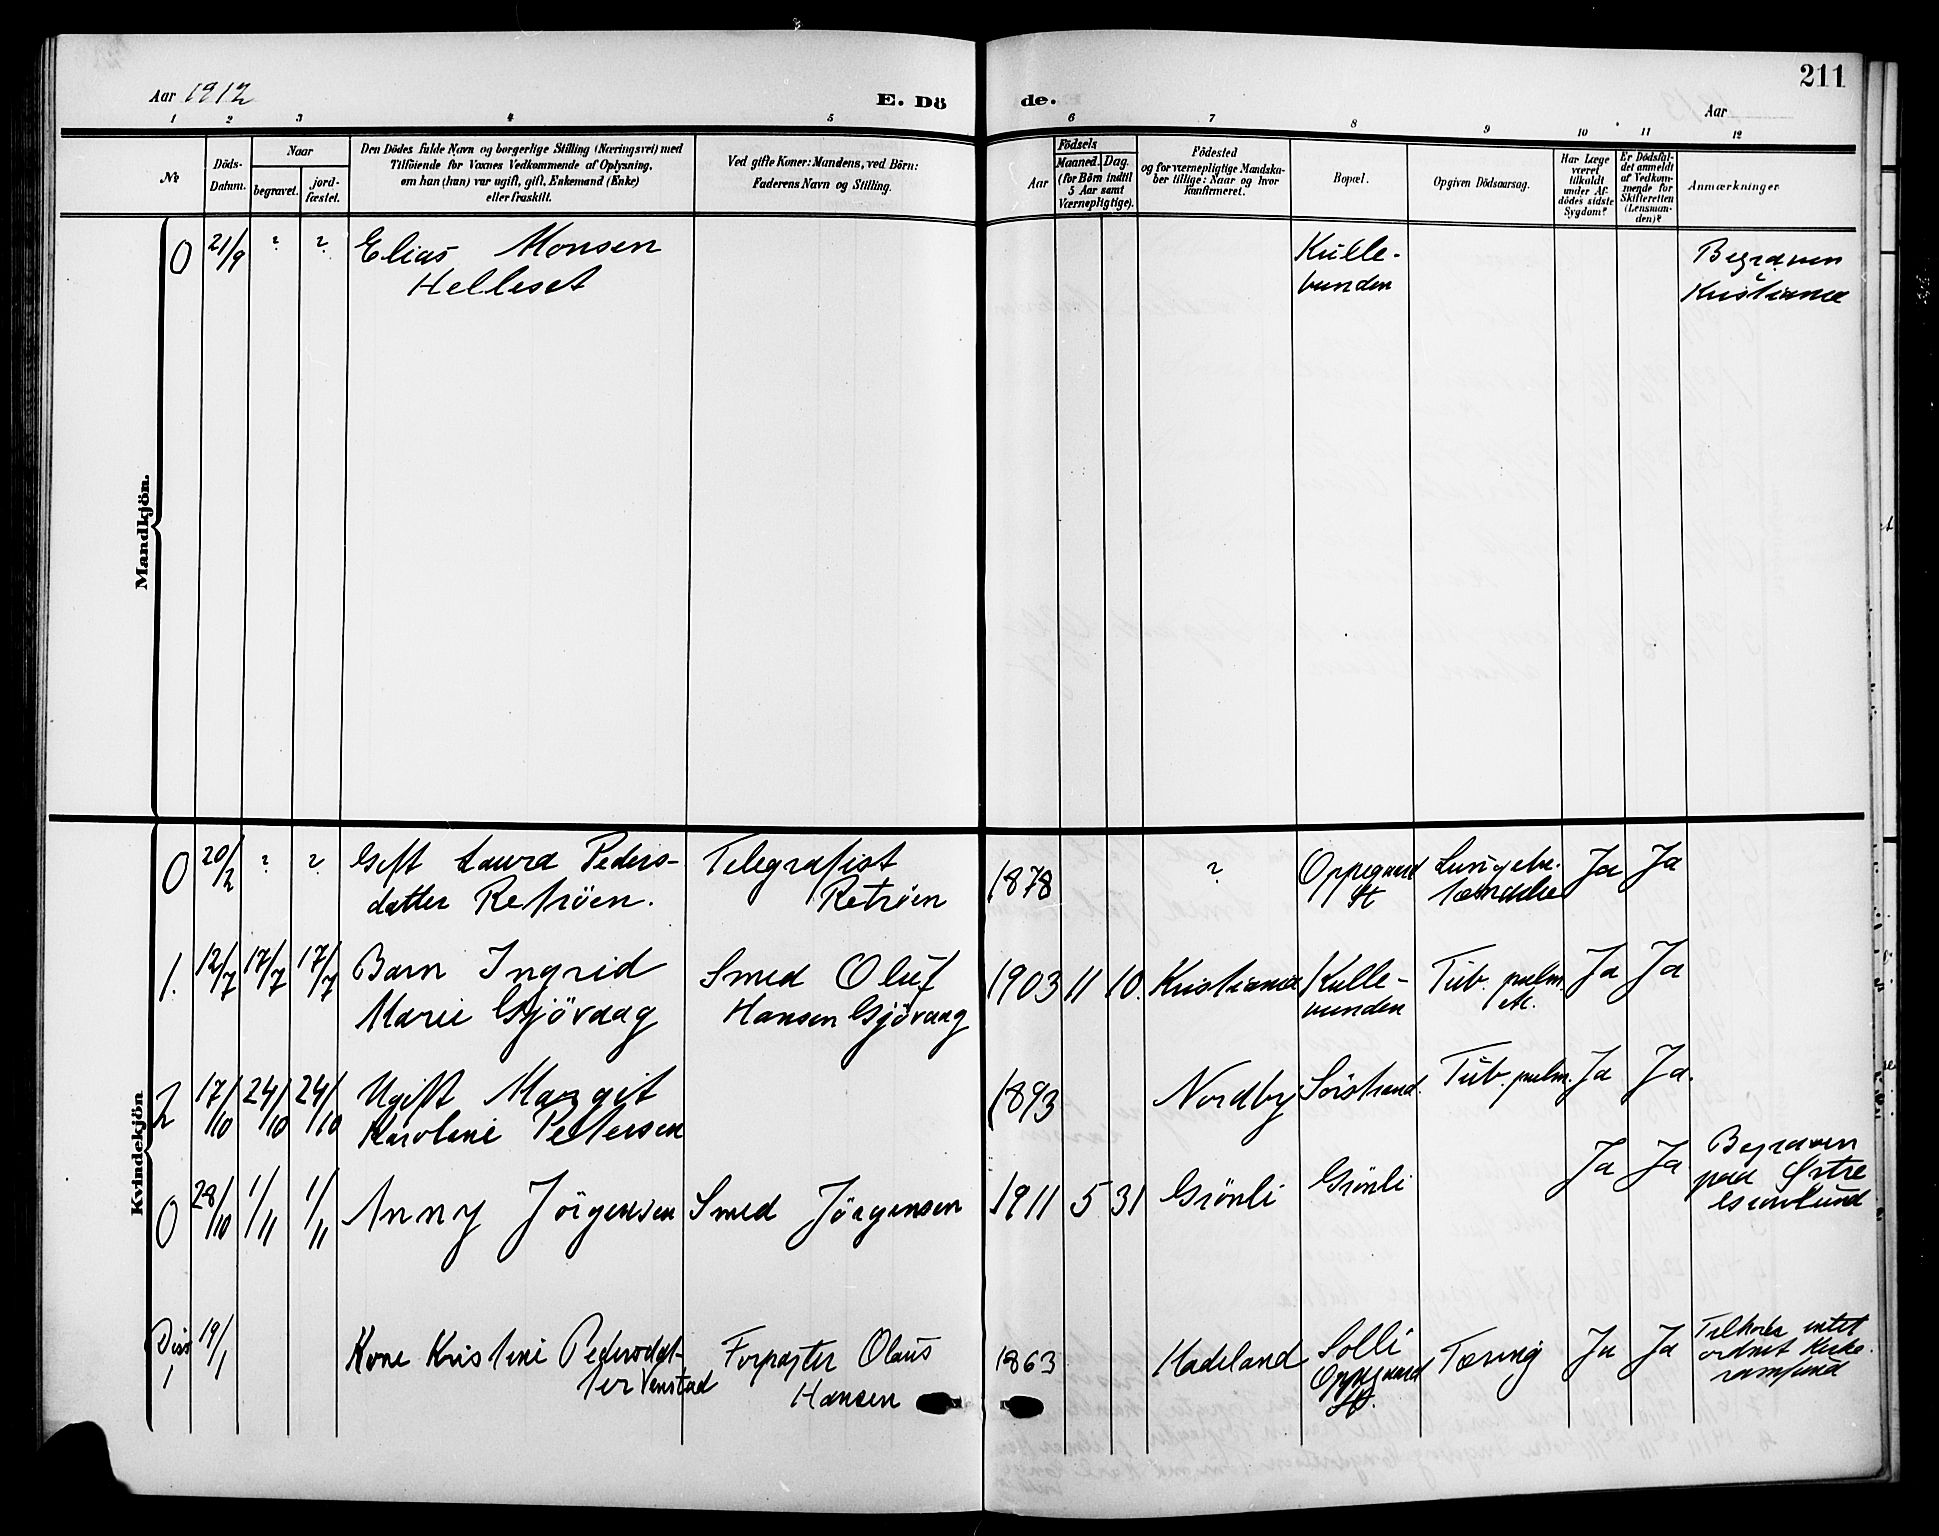 211
Aar 1912
E. Dö
de.
Aar
1 2 3 4 5 6 7 8 9 10 11 12
No
Döds-
Datum.
Naar
begravet.
jord-
fæstet.
Den Dödes fulde Navn og borgerlige Stilling (Næringsvei) med
Tilföiende for Voxnes Vedkommende af Oplysning,
om han (hun) var ugift, gift, Enkemand (Enke)
eller fraskilt.
Ved gifte Koner: Mandens, ved Börn:
Faderens Navn og Stilling.
Födsels
Aar
Maaned. Dag.
(for Börn indtil
5 Aar samt
Værnepligtige).
Födested
og for værnepligtige Mandska-
ber tillige: Naar og hvor
konfirmeret.
Bopæl.
Opgiven Dödsaarsag.
Har Læge
været
tilkaldt
under Af-
dödes sidste
Sygdom?
Er Dödsfal-
det anmeldt
af Vedkom-
mende for
Skifteretten
(Lensman-
den)?
Anmærkninger
Mandkjön.
0 21/9 ? ? Elias Monsen
Helleset
Kulle-
bunden
Begraven
Kristiania
Kvindekjön
0 20/2 ? ? Gift Laura Peders-
datter Retröen.
Telegrafist
Retröen
1878 ? Oppegaard
St
Lungebe-
tændelse
Ja Ja
1. 12/7 17/7 17/7 Barn Ingrid
Marie Gjövaag
Smed Oluf
Hansen Gjövaag
1903 11 10. Kristiania Kulle-
bunden
Tub. pulm.
etc.
Ja Ja
2 17/10 24/10 24/10 Ugift Margit
Karoline Pettersen
1893 Nordby Sörstrand. Tub. pulm. Ja Ja.
0 28/10 1/11 1/11 Anny Jörgensen Smed Jörgensen
1911 5 31 Grönli Grönli Ja Ja
Begraven
paa Östre
Gravlund
Diss
1
19/1 Kone Kristine Pedersdat-
ter Venstad
Forpagter Olaus
Hansen
1863 Hadeland Solli
Oppegaard
St.
Tæring Ja Ja
Tilhörte intet
ordnet Kirke-
samfund